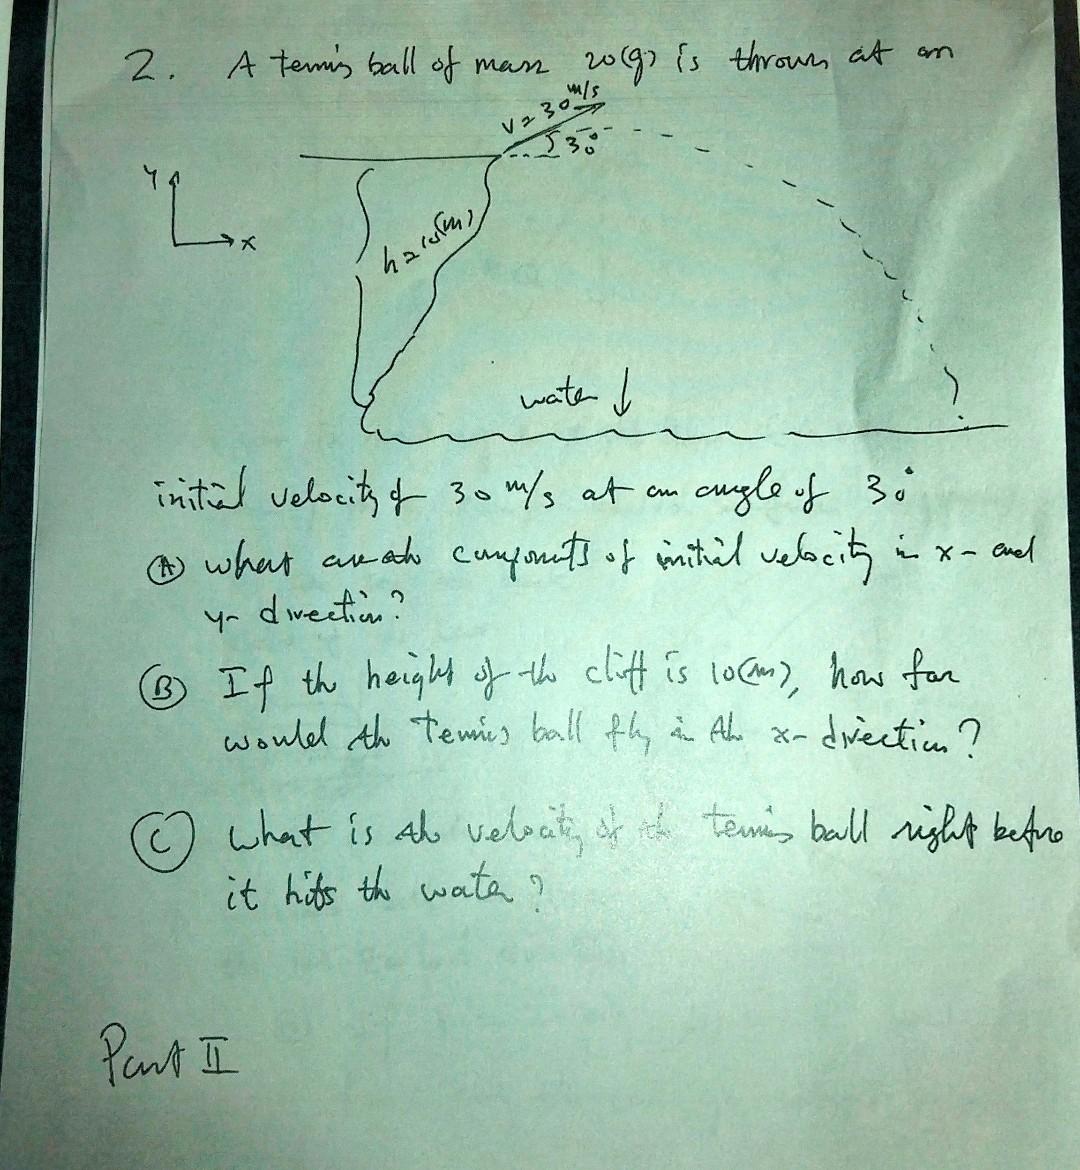 2. A tennis ball of mass 20(g) is thrown at an
v = 30 m/s
30°
y
x
h = 10(m)
water ↓
initial velocity of 30 m/s at an angle of 30°
(A) what are the components of initial velocity in x- and
y- direction?
(B) If the height of the cliff is 10(m), how far
would the tennis ball fly in the x- direction?
(C) what is the velocity of the tennis ball right before
it hits the water?
Part II